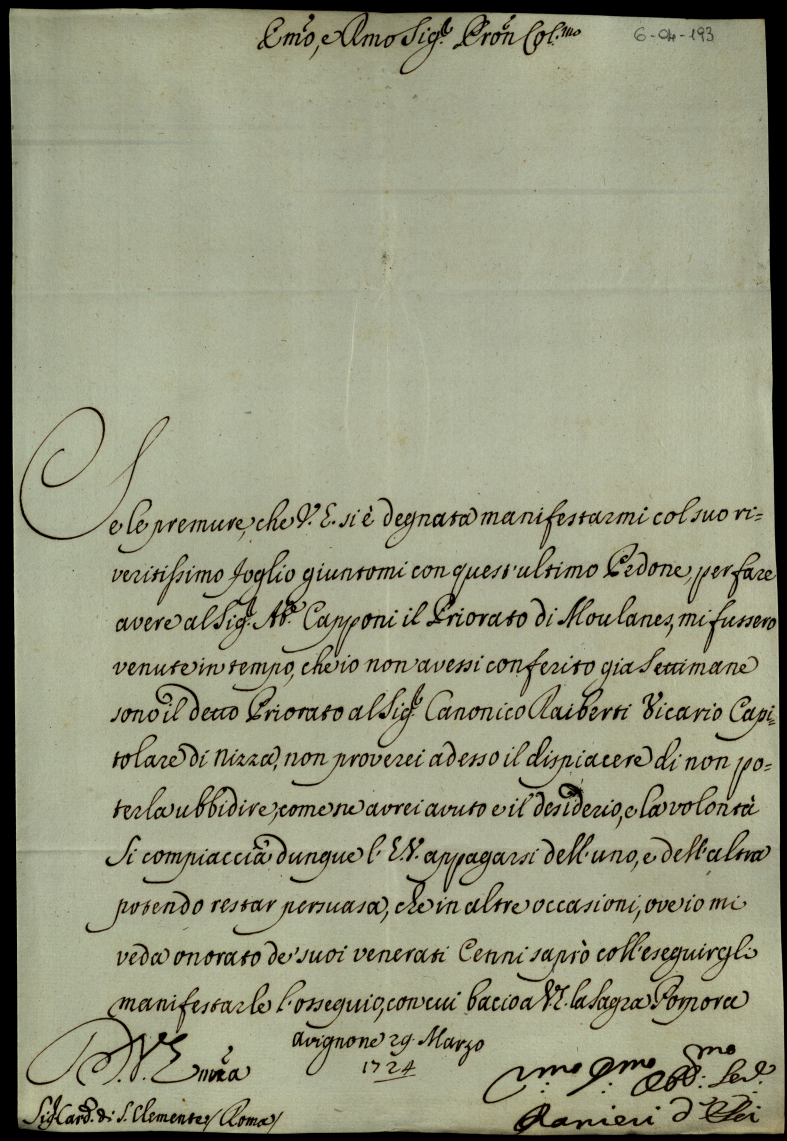 Emo, e Rmo Sig.r Pron Col.mo
6-04-193
Se le premure, che V. E. si è degnata manifestarmi col suo ri=
veritissimo foglio giuntomi con quest'ultimo Pedone, per fare
avere al Sig.r Ab.e Capponi il Priorato di Moulanes, mi fussero
venute in tempo, che io non avessi conferito gia Settimane
sono il detto Priorato al Sig.r Canonico Raiberti Vicario Capi=
tolare di Nizza, non proverei adesso il dispiacere di non po=
terla ubbidire, come ne avrei avuto e il desiderio, e la volontà
Si compiaccia dunque l'E.V. appagarsi dell'uno, e dell'altra
potendo restar persuasa, che in altre occasioni, ove io mi
veda onorato de' suoi venerati Cenni saprò coll'eseguirgli
manifestarle l'ossequio, con cui bacio a V.E. la Sagra Porpora
Avignone 29 Marzo
1724
D. V. Emza
Sig.r Card. di S. Clemente / Roma /
Umo Dmo Obb.mo Ser.
Ranieri d'Elci